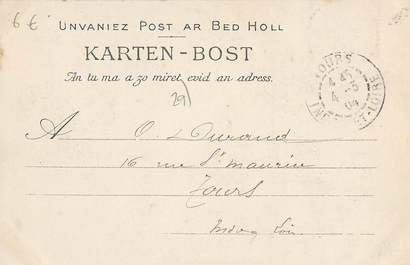 6 €
UNVANIEZ POST AR BED HOLL
KARTEN-BOST
An tu ma a zo miret evid an adress.
29)
A
Durand
16 rue St Maurice
Tours
TOURS
4 45
4 -5
04
INDRE-ET-LOIRE